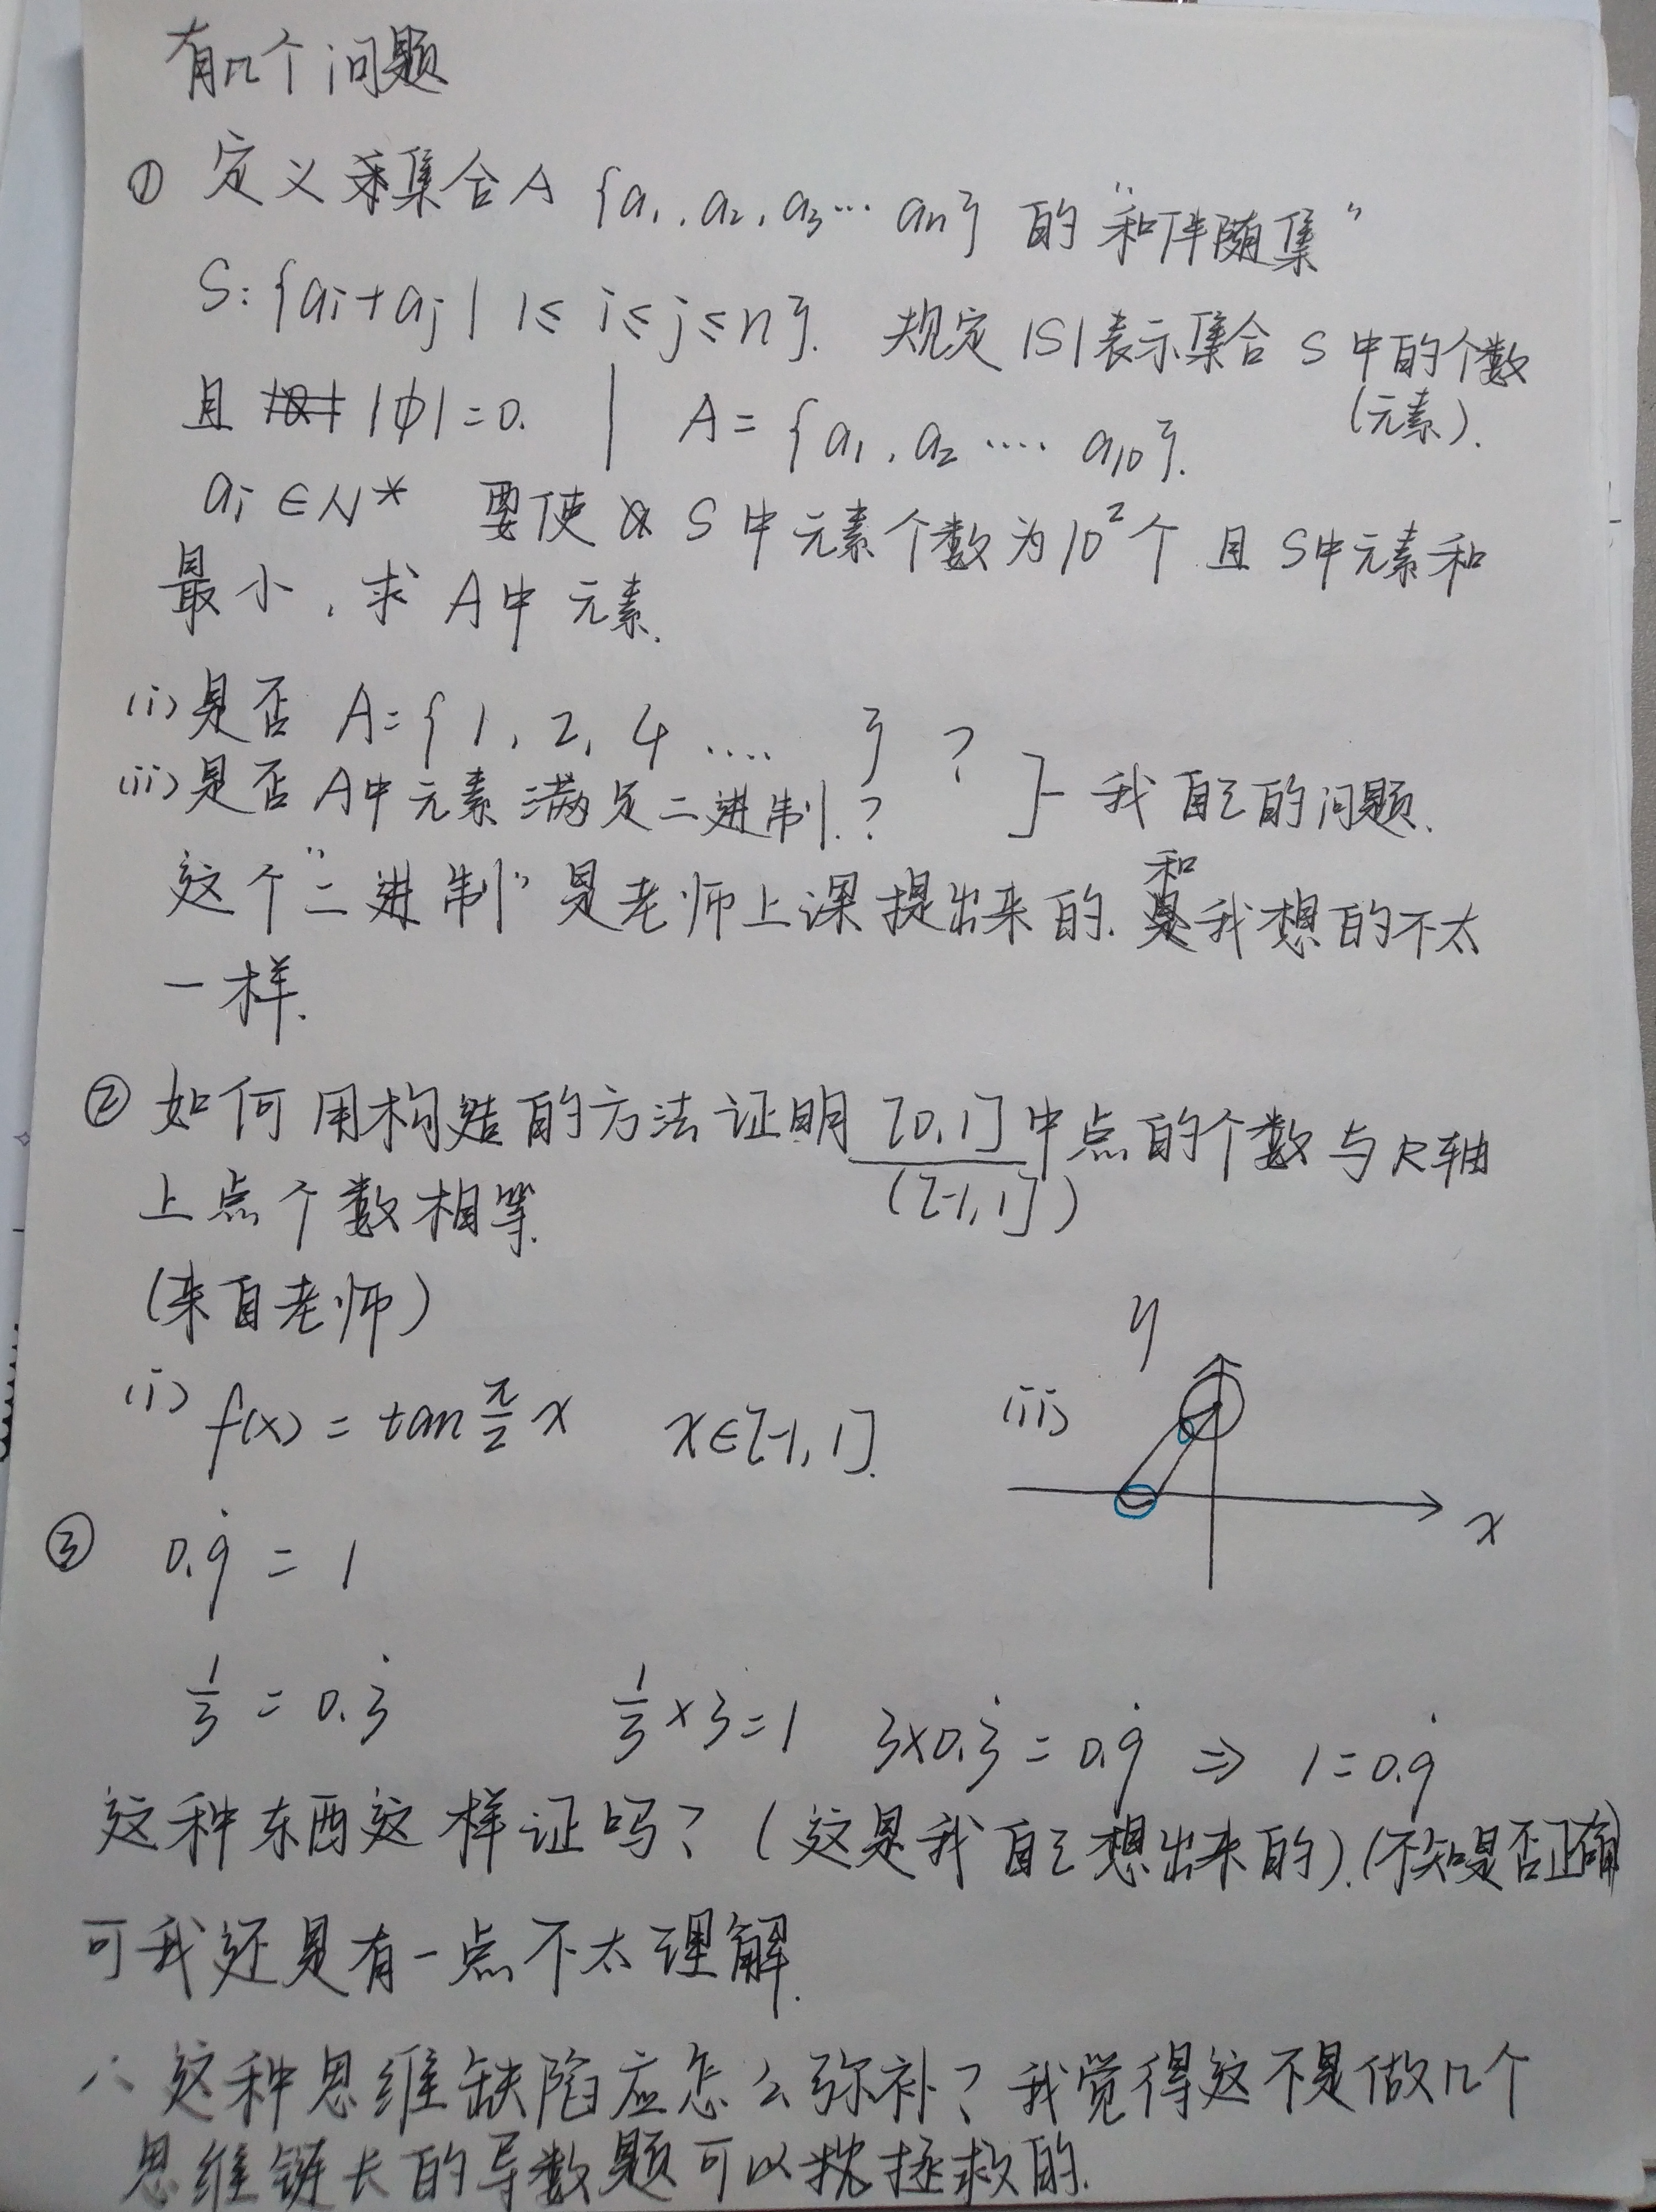 有几个问题
① 定义某集合A {a₁,a₂,a₃…an} 的“和伴随集”
S:{ai+aj|1≤i≤j≤n}. 规定|S|表示集合S中的个数
(元素).
且 |∅|=0. | A={a₁,a₂….a₁₀}.
ai∈N* 要使 S中元素个数为10²个 且S中元素和
最小,求A中元素.
(i)是否 A={1,2,4…. }?
(ii)是否A中元素满足二进制.? ]-我自己的问题.
这个“二进制”是老师上课提出来的.和我想的不太
一样.
② 如何用构造的方法证明[0,1]中点的个数与R轴
([-1,1])
上点个数相等.
(来自老师)
(i) f(x)=tan π/2 x x∈[-1,1].
(ii) y x
③ 0.9̇=1
1/3=0.3̇ 1/3×3=1 3×0.3̇=0.9̇ ⇒ 1=0.9̇
这种东西这样证吗?(这是我自己想出来的).(不知是否正确)
可我还是有一点不太理解.
这种思维缺陷应怎么弥补?我觉得这不是做几个
思维链长的导数题可以拯救的.